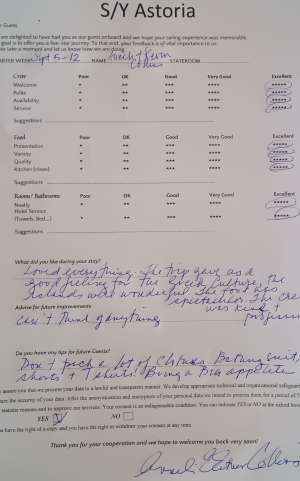 S/Y Astoria
Guest
are delighted to have had you as our guests onboard and we hope your sailing experience was memorable.
goal is to offer you a five-star journey. To that end, your feedback is of vital importance to us.
take a moment and let us know how we are doing
CHARTER WEEK Sept 5-12 NAME STATEROOM
Crew Poor OK Good Very Good Excellent
Welcome * ** *** **** *****
Polite * ** *** **** *****
Availability * ** *** **** *****
Service * ** *** **** *****
Suggestions
Food Poor OK Good Very Good Excellent
Presentation * ** *** **** *****
Variety * ** *** **** *****
Quality * ** *** **** *****
Kitchen (views) * ** *** **** *****
Suggestions
Rooms/ Bathrooms Poor OK Good Very Good Excellent
Neatly * ** *** **** *****
Hotel Service
(Towels, Bed...) * ** *** **** *****
Suggestions
What did you like during your stay?
Loved everything. The trip gave us a
good feeling for the Greek Culture, the
Islands were wonderful. The food was
spectacular. The crew
was kind &
Advice for future improvements
Can't think of anything
Do you have any tips for future Guests?
Don't pack a lot of clothes. Bathing suit,
shorts & T shirts. Bring a Big appetite
assures you that we process your data in a lawful and transparent manner. We develop appropriate technical and organizational safeguards
the security of your data. After the anonymization and encryption of your personal data we intend to process them for a period of 5
statistic reasons and to improve our services. Your consent is an indispensable condition. You can indicate YES or NO at the related boxes
YES NO
You have the right of a copy and you have the right to withdraw your consent at any time.
Thank you for your cooperation and we hope to welcome you back very soon!